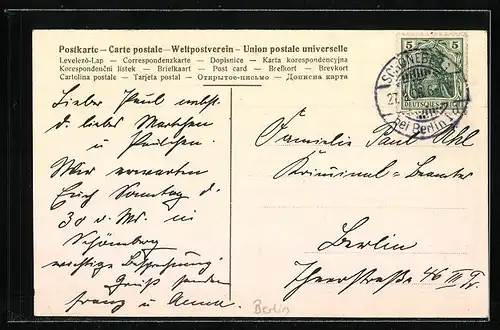 Postkarte – Carte postale – Weltpostverein – Union postale universelle
Levelező-Lap — Correspondenzkarte — Dopisnice — Karta korespondencyjna
Korespondenční lístek — Briefkaart — Post card — Brefkort — Brevkort
Cartolina postale — Tarjeta postal — Открытое-письмо — Дописна карта
5 5
DEUTSCHES REICH
SCHÖNEBERG
bei Berlin
Lieber Paul nebst
d. liebes
u
Wir erwarten
Erich Sonntag d.
30 v. Mts. in
Schöneberg
wichtige Besprechung
Gruß senden
Franz u Anna.
Familie Paul Uhl
Kriminal-Beamter
Berlin
46 II Tr.
Berlin